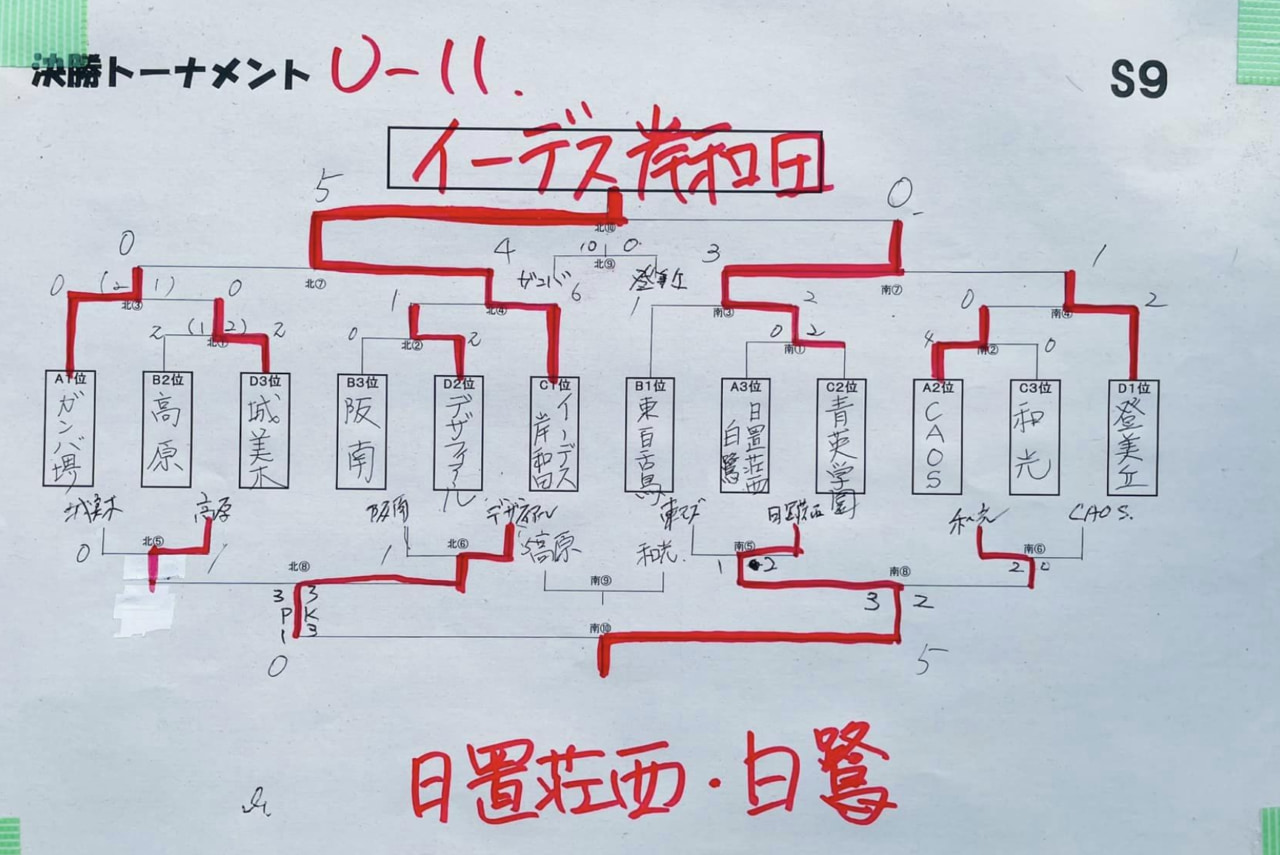 決勝トーナメント U-11. S9
イーデス岸和田
5 0
北⑩
0 4 (0 0 3 1
北⑨
ガンバ 登美丘
北⑦ 南⑦
0 (2 1) 0 1 6 1 2 0 2
北③ 北④ 南③ 南④
2 (1 2) 2 0 2 0 2 4 0
北① 北② 南① 南②
A1位 B2位 D3位 B3位 D2位 C1位 B1位 A3位 C2位 A2位 C3位 D1位
ガンバ堺
高原
城美木
阪南
デザフィアル
イーデス
岸和田
東百舌鳥
日置荘西
白鷺
青英学園
CAOS
和光
登美丘
高原 阪南 デザフィアル 日置荘西 和光 CAOS.
0 北⑤ 1 1 北⑥ 高原 和光 1 南⑤ 2 2 南⑥
北⑧ 南⑨ 南⑧
3 3 3 2
P K
1 3 南⑩
0 5
日置荘西・白鷺